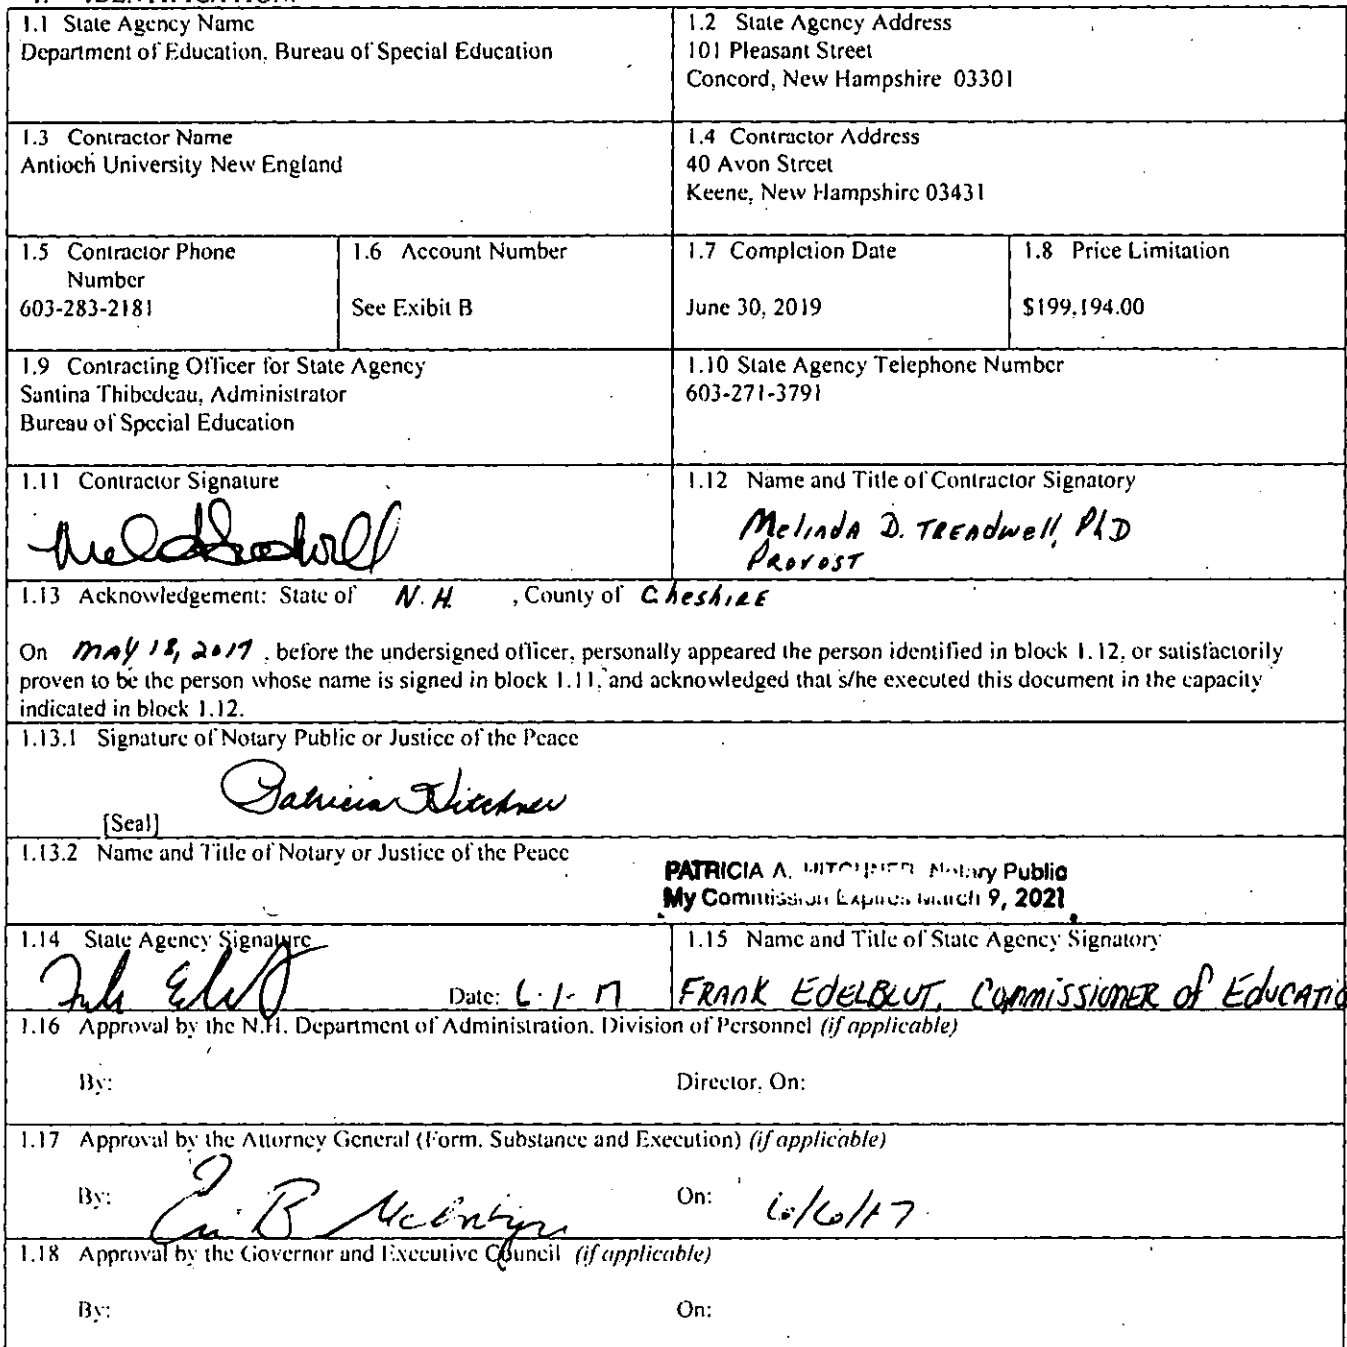 1.1 State Agency Name
Department of Education, Bureau of Special Education
1.2 State Agency Address
101 Pleasant Street
Concord, New Hampshire 03301
1.3 Contractor Name
Antioch University New England
1.4 Contractor Address
40 Avon Street
Keene, New Hampshire 03431
1.5 Contractor Phone
Number
603-283-2181
1.6 Account Number
See Exibit B
1.7 Completion Date
June 30, 2019
1.8 Price Limitation
$199,194.00
1.9 Contracting Officer for State Agency
Santina Thibedeau, Administrator
Bureau of Special Education
1.10 State Agency Telephone Number
603-271-3791
1.11 Contractor Signature
1.12 Name and Title of Contractor Signatory
Melinda D. Treadwell, PhD
Provost
1.13 Acknowledgement: State of N.H. , County of Cheshire
On May 18, 2017 , before the undersigned officer, personally appeared the person identified in block 1.12, or satisfactorily
proven to be the person whose name is signed in block 1.11, and acknowledged that s/he executed this document in the capacity
indicated in block 1.12.
1.13.1 Signature of Notary Public or Justice of the Peace
Patricia Hitchner
[Seal]
1.13.2 Name and Title of Notary or Justice of the Peace
PATRICIA A. HITCHNER, Notary Public
My Commission Expires March 9, 2021
1.14 State Agency Signature
Date: 6-1-17
1.15 Name and Title of State Agency Signatory
FRANK EDELBLUT, Commissioner of Educatio
1.16 Approval by the N.H. Department of Administration, Division of Personnel (if applicable)
By:
Director, On:
1.17 Approval by the Attorney General (Form, Substance and Execution) (if applicable)
By: B McIntyre
On: 6/6/17
1.18 Approval by the Governor and Executive Council (if applicable)
By:
On: